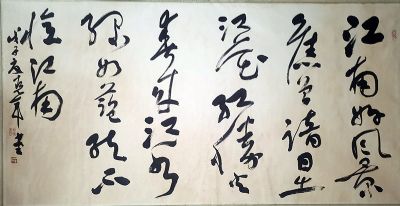 江南好風景
舊曾諳日出
江花红勝火
春来江水
绿如蓝能不
憶江南
戊子夏 书